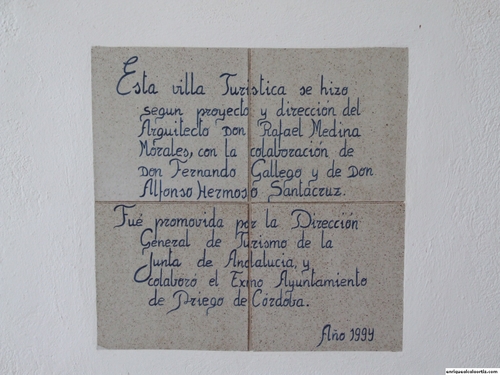 Esta villa Turistica se hizo
segun proyecto y dirección del
Arquitecto Don Rafael Medina
Morales, con la colaboración de
Don Fernando Gallego y de Don
Alfonso Hermoso Santacruz.
Fué promovida por la Dirección
General de Turismo de la
Junta de Andalucia, y
colaboró el Exmo Ayuntamiento
de Priego de Córdoba.
Año 1994
enriquealcalaortiz.com